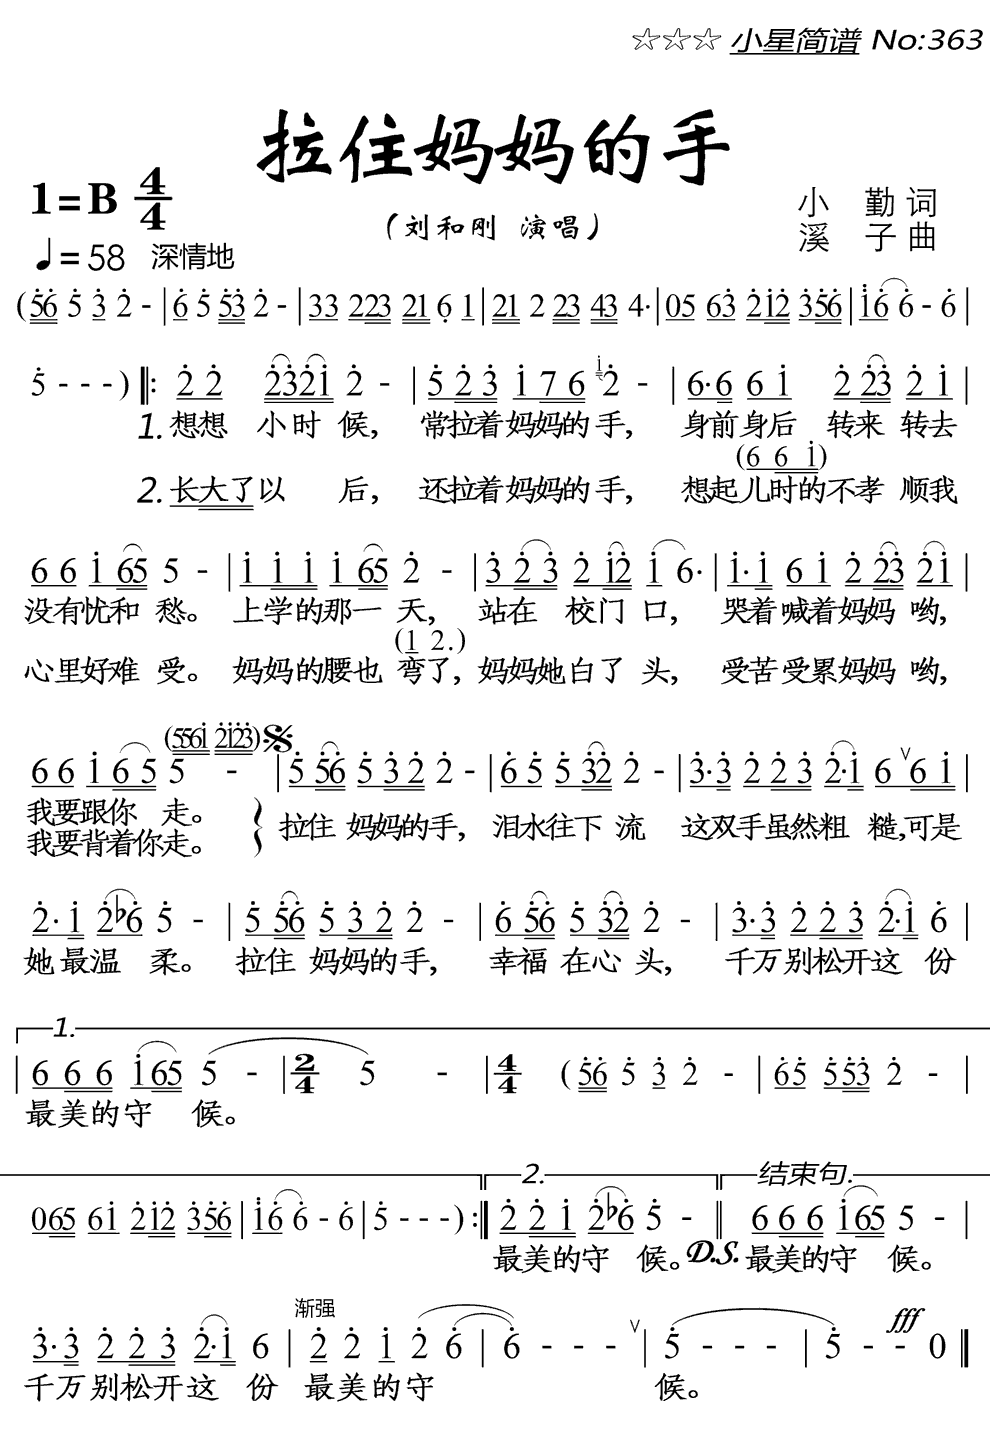 ☆☆☆ 小星简谱 No:363
拉住妈妈的手
1=B 4/4
（刘和刚 演唱）
小 勤 词
溪 子 曲
♩=58 深情地
(56 5 3 2 - | 6 5 53 2 - | 33 223 21 6 1 | 21 2 23 43 4· | 05 63 212 356 | 16 6 - 6 |
5 - - - ) ‖: 2 2 2321 2 - | 5 2 3 1 7 6 i2 - | 6·6 6 1 2 23 2 1 |
1. 想想 小时 候， 常拉着妈妈的手， 身前身后 转来 转去
(6 6 1)
2. 长大了以 后， 还拉着妈妈的手， 想起儿时的不孝 顺我
6 6 1 65 5 - | 1 1 1 1 65 2 - | 3 2 3 2 12 1 6· | 1·1 6 1 2 23 21 |
没有忧和 愁。 上学的那一 天， 站在 校门 口， 哭着喊着妈妈 哟，
(1 2.)
心里好难 受。 妈妈的腰也 弯了， 妈妈她白了 头， 受苦受累妈妈 哟，
(5561 2123)
6 6 1 6 5 5 - | 5 56 5 3 2 2 - | 6 5 5 32 2 - | 3·3 2 2 3 2·1 6 ∨ 6 1 |
我要跟你 走。
我要背着你走。
拉住 妈妈的手， 泪水往下 流 这双手虽然粗 糙，可是
2·1 2♭6 5 - | 5 56 5 3 2 2 - | 6 56 5 32 2 - | 3·3 2 2 3 2·1 6 |
她最温 柔。 拉住 妈妈的手， 幸福 在心 头， 千万别松开这 份
1.
| 6 6 6 165 5 - | 2/4 5 - | 4/4 (56 5 3 2 - | 65 553 2 - |
最美的守 候。
2. 结束句.
065 61 212 356 | 16 6 - 6 | 5 - - - ) :‖ 2 2 1 2♭6 5 - ‖ 6 6 6 165 5 - |
最美的守 候。 D.S. 最美的守 候。
渐强 fff
3·3 2 2 3 2·1 6 | 2 2 1 2 6 | 6 - - - ∨ | 5 - - - | 5 - - 0 ‖
千万别松开这 份 最美的守 候。